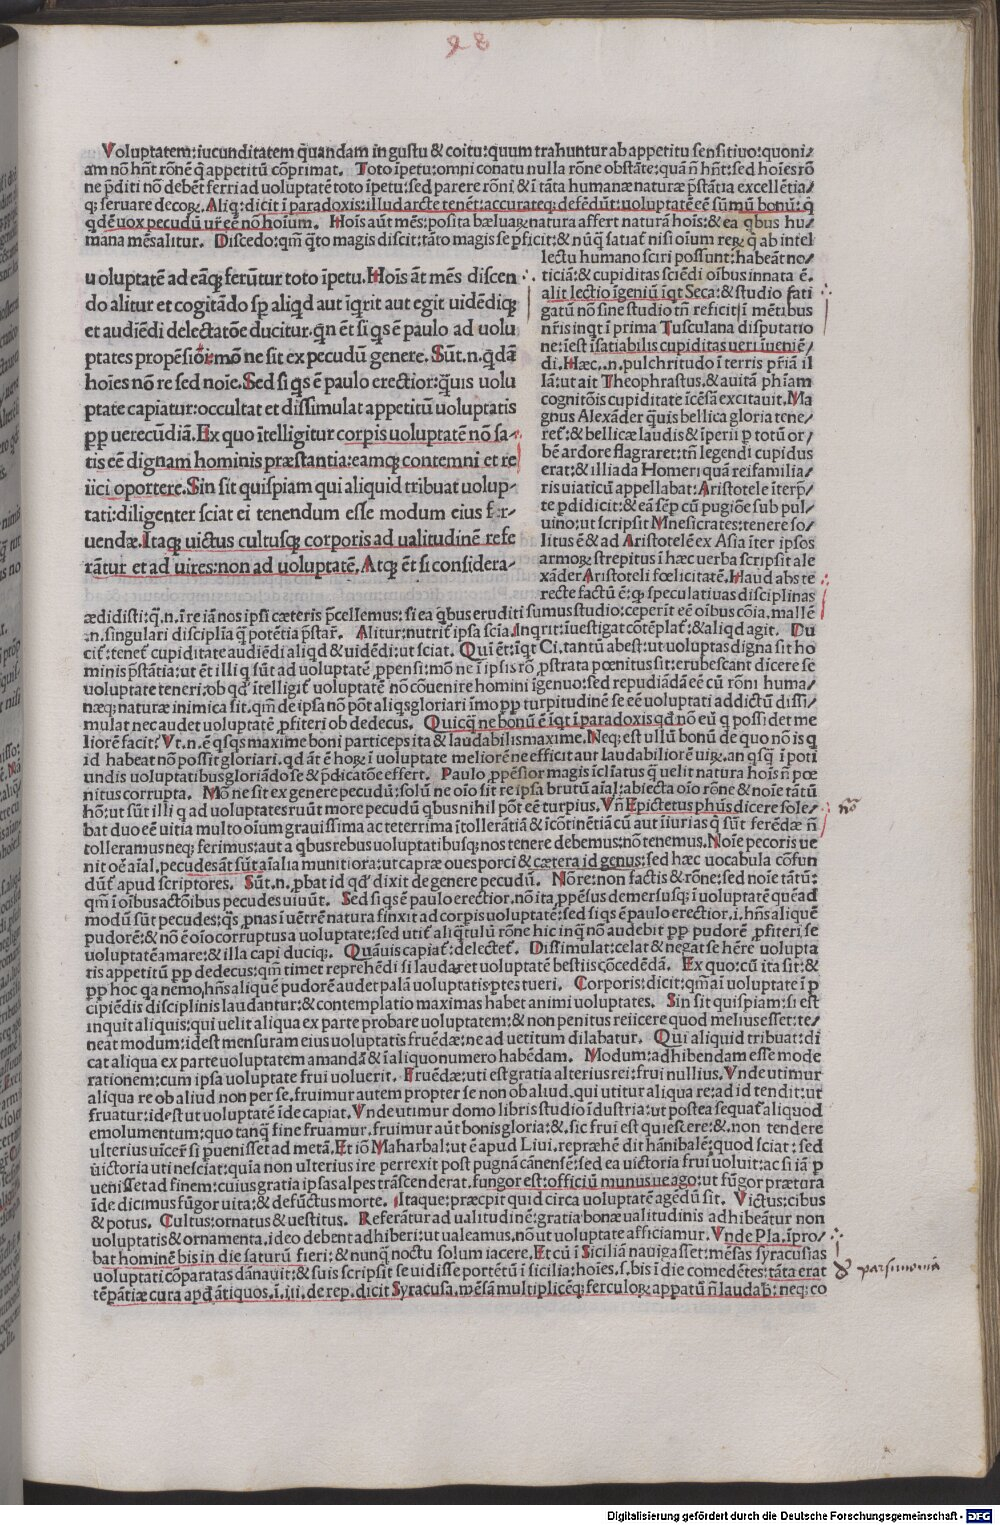 28
Voluptatem:iucunditatem q̄uandam in gustu & coitu:quum trahuntur ab appetitu sensitiuo:quoni⸗
am nō hn̄t rōnē q̄ appetitū cōprimat. Toto īpetu:omni conatu nulla rōne obstāte:quā n̄ hn̄t:sed hoīes rō
ne p̄diti nō debēt ferri ad uoluptatē toto īpetu:sed parere rōni & ī tāta humanæ naturæ p̄stātia excellētia⸗
q; seruare decoꝝ. Aliq;:dicit ī paradoxis:illud arcte tenēt:accurateq; defēdūt:uoluptatē eē sūmū bonū: q̄
q̄dē uox pecudū ur̄ eē nō hoīum. Hoīs aūt mēs:posita bæluaꝝ natura affert naturā hoīs:& ea q̄bus hu⸗
mana mēs alitur. Discedo:qm̄ q̄to magis discit:tāto magis se p̄ficit:& nūq̄ satiat᷑ nisi oīum reꝝ q̄ ab intel
lectu humano sciri possunt:habeāt no⸗
ticiā:& cupiditas sciēdi oībus innata ē.
alit lectio īgeniū īqt Seca:& studio fati
gatū nō sine studio tn̄ reficit:ī mētibus
nr̄is inqt ī prima Tusculana disputatio
ne:īest īsatiabilis cupiditas ueri īueniē⸗
di. Hæc.n.pulchritudo ī terris p̄riā il
lā:ut ait Theophrastus.& auitā ph̄iam
cognitōis cupiditate īcēsā excitauit.Ma
gnus Alexāder q̄uis bellica gloria tene⸗
ret᷑:& bellicæ laudis & īperii p totū or⸗
bē ardore flagraret:tn̄ legendi cupidus
erat:& illiada Homeri quā rei familia⸗
ris uiaticū appellabat:Aristotele īterp̄⸗
te pdidicit:& eā sēp cū pugiōe sub pul⸗
uino:ut scripsit Mnesicrates:tenere so⸗
litus ē & ad Aristotelē ex Asia īter ipsos
armoꝝ strepitus ī hæc uerba scripsit ale
xāder Aristoteli fœlicitatē.Haud abs te
recte factū ē:q; speculatiuas disciplinas
uoluptatē ad eāq; ferūtur toto īpetu.Hoīs āt mēs discen
do alitur et cogitādo sp aliqd aut īqrit aut egit uidēdiq;
et audiēdi delectatōe ducitur.qn ēt si qs ē paulo ad uolu
ptates propēsior:mō ne sit ex pecudū genere. Sūt.n.q̄dā
hoīes nō re sed noīe.Sed si qs ē paulo erectior:q̄uis uolu
ptate capiatur:occultat et dissimulat appetitū uoluptatis
pp uerecūdiā.Ex quo ītelligitur corpis uoluptatē nō sa⸗
tis eē dignam hominis præstantia:eamq; contemni et re
iici oportere.Sin sit quispiam qui aliquid tribuat uolup⸗
tati:diligenter sciat ei tenendum esse modum eius fr-
uendæ.Itaq; uictus cultusq; corporis ad ualitudinē refe
rātur et ad uires:non ad uoluptatē.Atq; ēt si considera⸗
ædidisti:q̄.n.ī re iā nos ipsi cæteris p̄cellemus:si ea q̄bus eruditi sumus studio:ceperit eē oībus cōia.mallē
.n.singulari disciplīa q̄ potētia p̄star᷑. Alitur:nutrit᷑ ipsa scīa.Inqrit:īuestigat cōtēplat᷑:& aliqd agit. Du
cit᷑:tenet᷑ cupiditate audiēdi aliqd & uidēdi:ut sciat. Qui ēt:īqt Ci.tantū abest:ut uoluptas digna sit ho
minis p̄stātia:ut ēt illi q sūt ad uoluptatē ppensi:mō ne ī ipsis rō pstrata pœnitus sit:erubescant dicere se
uoluptate teneri:ob qd᷑ ītelligit᷑ uoluptatē nō cōuenire homini īgenuo:sed repudiādā eē cū rōni huma⸗
næq; naturæ inimica sit.qm̄ de ipsa nō pōt aliqs gloriari īmo pp turpitudinē se eē uoluptati addictū dissi⸗
mulat nec audet uoluptatē pfiteri ob dedecus. Quicq̄ ne bonū ē īqt ī paradoxis qd᷑ nō eū q possidet me
liorē facit? Vt.n.ē qsqs maxime boni particeps ita & laudabilis maxime.Neq; est ullū bonū de quo nō is q
id habeat nō possit gloriari.qd āt ē hoꝝ ī uoluptate meliorē ne efficit aut laudabiliorē uiꝝ.an qsq̄ ī poti
undis uoluptatibus gloriādo se & p̄dicatōe effert. Paulo ppēsior magis īcliatus q̄ uelit natura hoīs n̄ pœ
nitus corrupta. Mō ne sit ex genere pecudū:solū ne oīo sit re ipsa brutū aīal:abiecta oīo rōne & noīe tātū
hō:ut sūt illi q ad uoluptates ruūt more pecudū qbus nihil pōt eē turpius.Vn̄ Epictetus ph̄us dicere sole⸗
bat duo eē uitia multo oīum grauissima ac teterrima ītollerātiā & īcōtinētiā cū aut īiurias q̄ sūt ferēdæ n̄
tolleramus neq; ferimus:aut a qbus rebus uoluptatibusq; nos tenere debemus:nō tenemus.Noīe pecoris ue
nit oē aīal.pecudes āt sūt aīalia munitiora:ut capræ oues porci & cætera id genus:sed hæc uocabula cōfun
dūt᷑ apud scriptores. Sūt.n.pbat id qd᷑ dixit de genere pecudū. Nō re:non factis & rōne:sed noīe tātū:
qm̄ ī oībus actōibus pecudes uiuūt. Sed si qs ē paulo erectior.nō ita ppēsus demersusq; ī uoluptatē quēad
modū sūt pecudes:qs pnas ī uētrē natura finxit ad corpis uoluptatē:sed si qs ē paulo erectior.i.hn̄s aliquē
pudorē:& nō ē oīo corruptus a uoluptate:sed utit᷑ aliq̄tulū rōne hic inq̄ nō audebit pp pudorē pfiteri se
uoluptatē amare:& illa capi duciq;. Quāuis capiat᷑:delectet᷑. Dissimulat:celat & negat se hēre uolupta
tis appetitū pp dedecus:qm̄ timet reprehēdi si laudaret uoluptatē bestiis cōcedēdā. Ex quo:cū ita sit:&
pp hoc qa nēmo,hn̄s aliquē pudorē audet palā uoluptatis ptes tueri. Corporis:dicit:qm̄ aī uoluptate ī p
cipiēdis disciplinis laudantur:& contemplatio maximas habet animi uoluptates. Sin sit quispiam:si est
inquit aliquis:qui uelit aliqua ex parte probare uoluptatem:& non penitus reiicere quod melius esset:te⸗
neat modum:idest mensuram eius uoluptatis fruēdæ:ne ad uetitum dilabatur. Qui aliquid tribuat:di
cat aliqua ex parte uoluptatem amandā & ī aliquo numero habēdam. Modum:adhibendam esse mode
rationem:cum ipsa uoluptate frui uoluerit. Fruēdæ:uti est gratia alterius rei:frui nullius.Vnde utimur
aliqua re ob aliud non per se.fruimur autem propter se non ob aliud.qui utitur aliqua re:ad id tendit:ut
fruatur:idest ut uoluptatē īde capiat.Vnde utimur domo libris studio īdustria:ut postea sequat᷑ aliquod
emolumentum:quo tanq̄ fine fruamur.fruimur aūt bonis gloria:&.sic frui est quiescere:&.non tendere
ulterius uicer᷑ si puenisset ad metā.Et iō Maharbal:ut ē apud Liui.repræhēdit hānibalē:quod sciat:sed
uictoria uti nesciat:quia non ulterius ire perrexit post pugnā cānensē:sed ea uictoria frui uoluit:ac si iā p
uenisset ad finem:cuius gratia ipsas alpes trāscenderat.fungor est:officiū munus ue ago:ut fūgor prætura
īde dicimus fūgor uita:& defūctus morte. Itaque:præcpit quid circa uoluptatē agēdū sit. Victus:cibus
& potus. Cultus:ornatus & uestitus. Referātur ad ualitudinē:gratia bonæ ualitudinis adhibeātur non
uoluptatis & ornamenta.ideo debent adhiberi:ut ualeamus.nō ut uoluptate afficiamur.Vnde Pla.īpro⸗
bat hominē bis in die saturū fieri:& nunq̄ noctu solum iacere.Et cū ī Siciliā nauigasset:mēsas syracusias
uoluptati cōparatas dānauit:& suis scripsit se uidisse portētū ī sicilia:hoīes.s.bis ī die comedētes:tāta erat
tēpātiæ cura apd ātiquos.ī.iii.de rep.dicit Syracusa.mēsā multiplicēq; ferculoꝝ appatū n̄ laudab᷑:neq; co
parsimonia
Digitalisierung gefördert durch die Deutsche Forschungsgemeinschaft - DFG